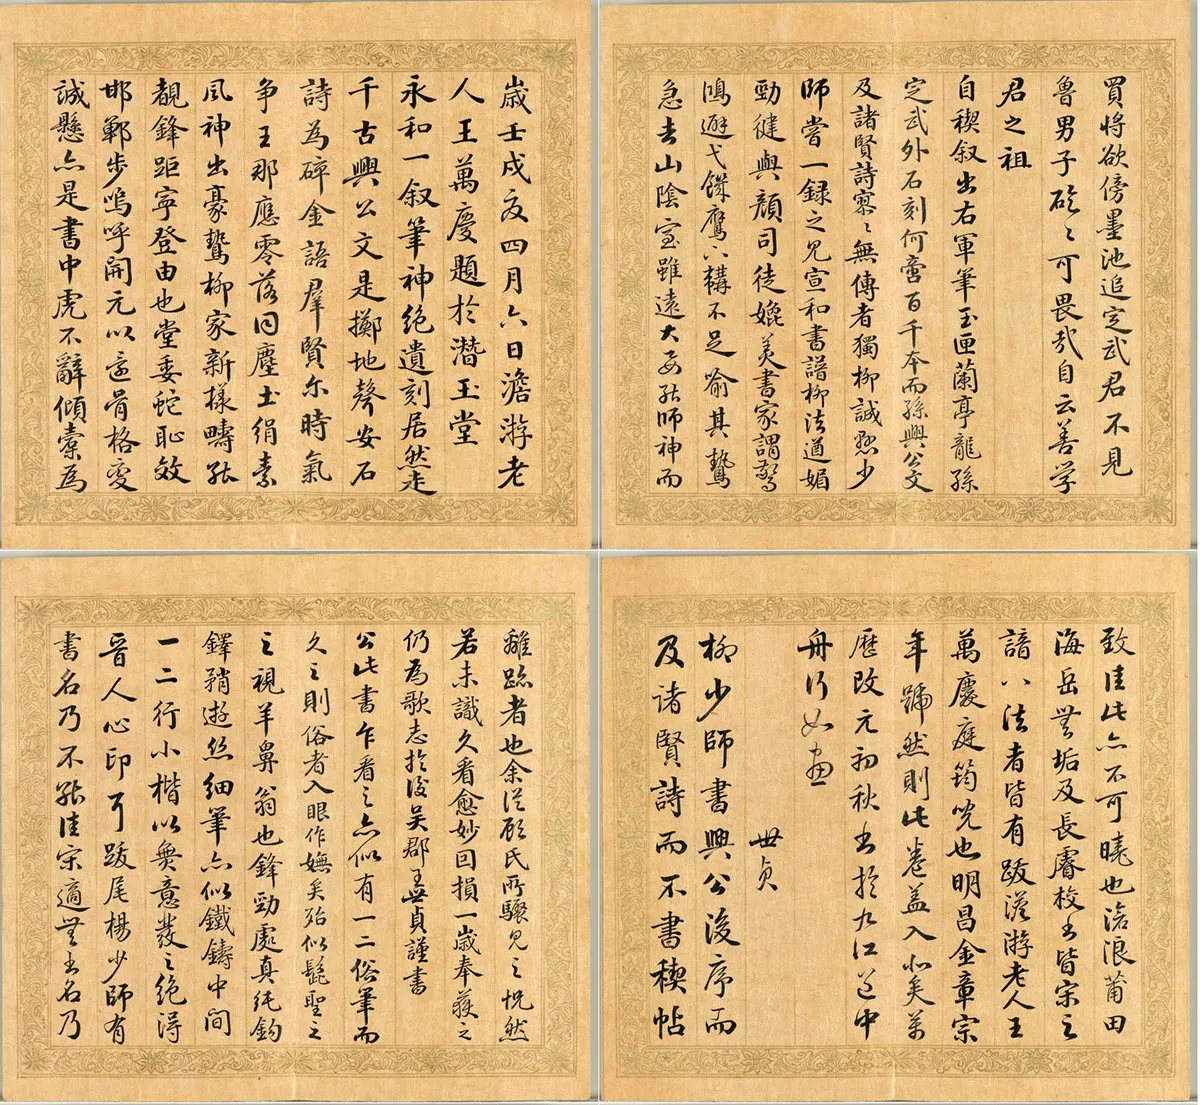 歲壬戌夏四月六日澹游老
人王萬慶題於潛玉堂
永和一叙筆神絶遺刻居然走
千古興公文是擲地聲安石
詩為碎金語羣賢尔時氣
争王那應零落同塵土絹素
風神出豪鷙柳家新樣疇能
覩鋒距寧登由也堂委蛇恥效
邯鄲步嗚呼開元以還骨格變
誠懸亦是書中虎不辭傾橐為
買將欲傍墨池追定武君不見
魯男子硁〻可畏哉自云善学
君之祖
自稧叙出右軍筆玉匣蘭亭龍孫
定武外石刻何啻百千本而孫興公文
及諸賢詩寥〻無傳者獨柳誠懸少
師嘗一録之見宣和書譜柳法遒媚
勁健與顔司徒媲美書家謂驚
鴻避弋饑鷹下韝不足喻其鷙
急去山陰室雖遠大要能師神而
離跡者也余從顧氏所驟見之怳然
若未識久看愈妙因損一歲奉獲之
仍為歌志於後吳郡王世貞謹書
公此書乍看之亦似有一二俗筆而
久之則俗者入眼作嫵矣殆似髭聖之
之視羊鼻翁也鋒勁處真純鈎
鞘遊絲細筆亦似鐵鑄中間
一二行小楷以無意發之絶得
晉人心印耳跋尾楊少師有
書名乃不能佳宋適無書名乃
致佳此亦不可曉也滄浪莆田
海岳無垢及長睿校書皆宋之
諳八法者皆有跋澹游老人王
萬慶庭筠兒也明昌金章宗
年號然則此卷蓋入北矣萬
歷改元初秋書於九江道中
舟行如畫
世貞
柳少師書興公後序而
及諸賢詩而不書稧帖